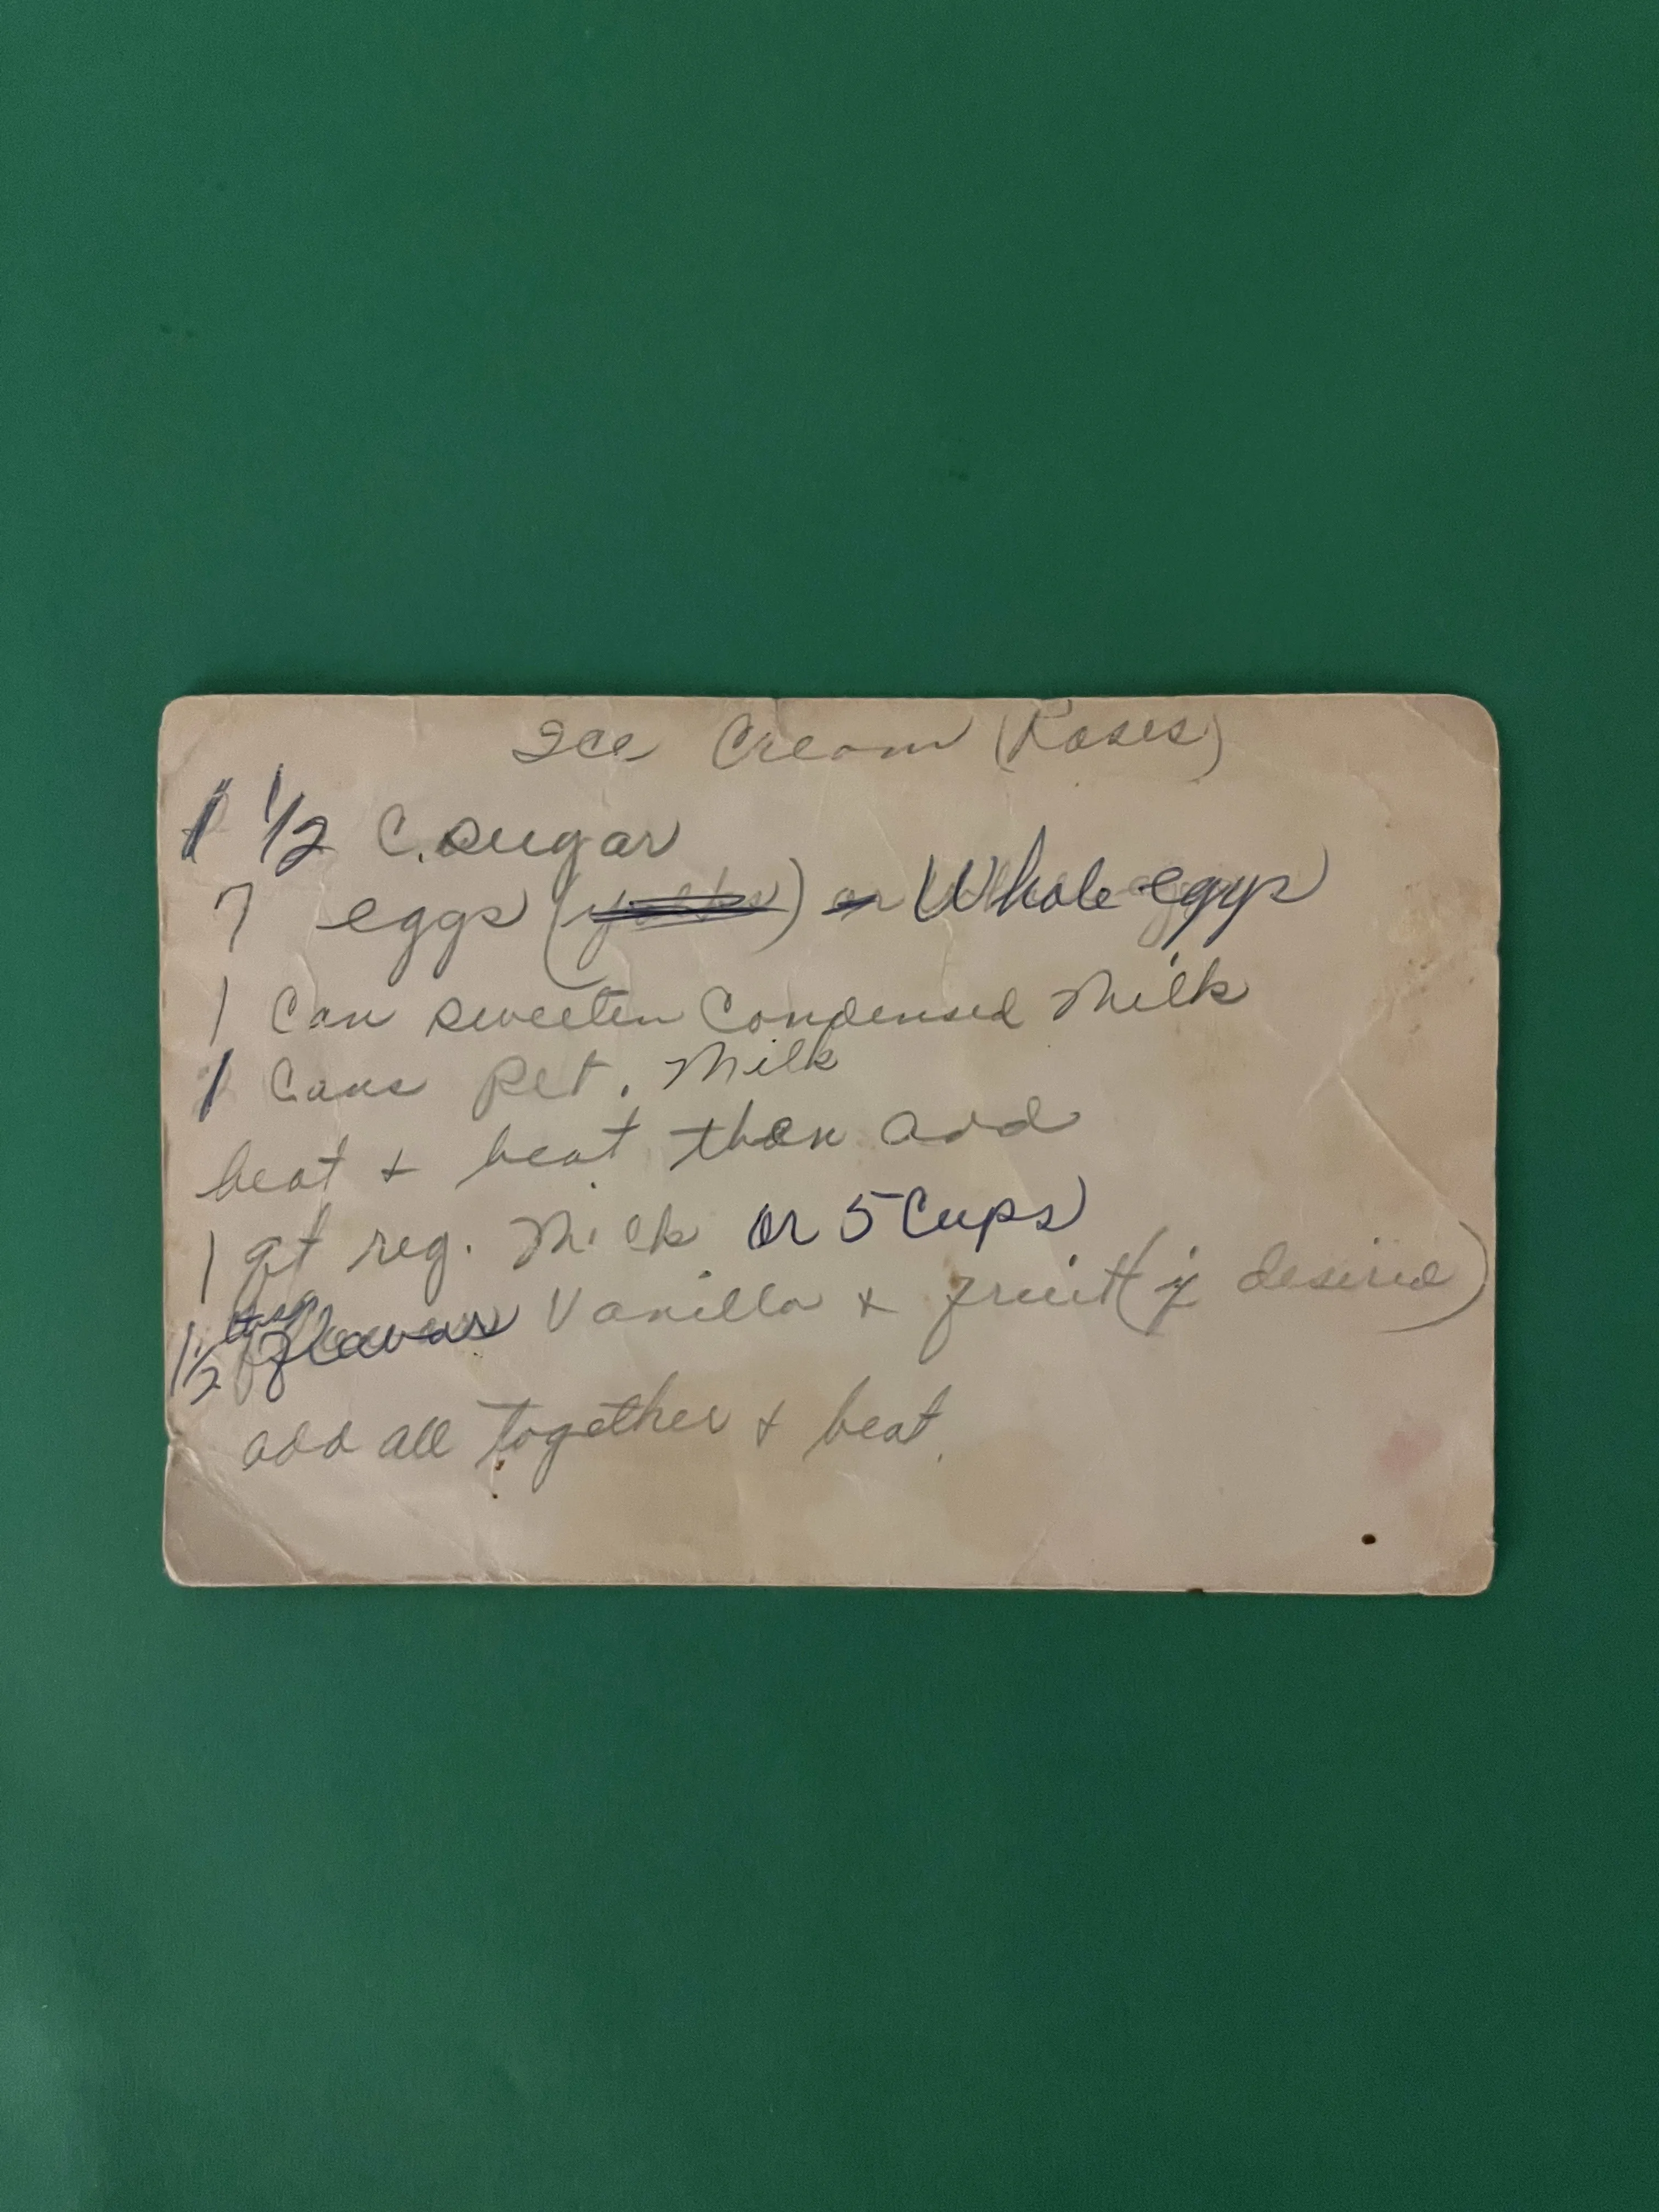 Ice Cream (Roses)
1 1/2 C. sugar
7 eggs (yolks) or Whole eggs
1 Can sweeten Condensed Milk
1 Cans Pet. Milk
beat + beat then add
1 qt reg. Milk or 5 Cups
1 1/2 flavors Vanilla + fruit (if desired)
add all together + beat.